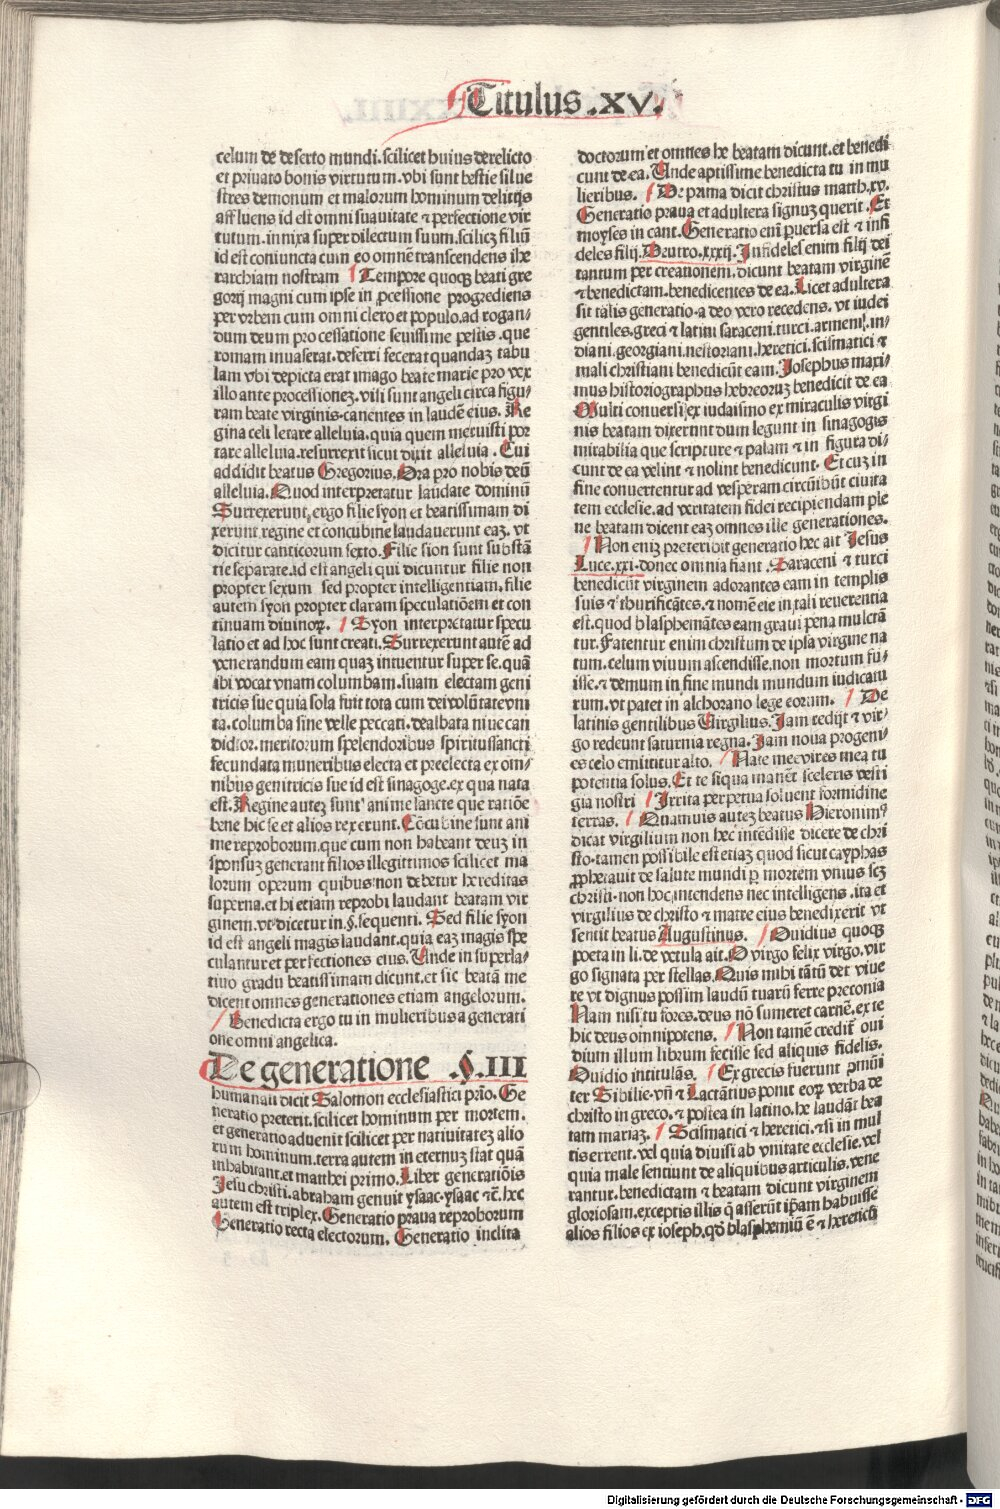 Titulus .xv.
celum de deserto mundi.scilicet huius derelicto
et priuato bonis virtutum.vbi sunt bestie silue
stres demonum et malorum hominum delitijs
affluens id est omni suauitate ⁊ perfectione vir
tutum.innixa super dilectum suum.scilicꝫ filiū
id est coniuncta cum eo omnē transcendens ihe
rarchiam nostram Tempore quoqꝫ beati gre
gorij magni cum ipse in ꝓcessione progrediens
per vrbem cum omni clero et populo.ad rogan⸗
dum deum pro cessatione seuissime pestis.que
romam inuaserat.deferri fecerat quandaꝫ tabu
lam vbi depicta erat imago beate marie pro vex
illo ante processioneꝫ.visi sunt angeli circa figu⸗
ram beate virginis.canentes in laudē eius. Re
gina celi letare alleluia.quia quem meruisti por
tare alleluia.resurrexit sicut dixit alleluia . Cui
addidit beatus Gregorius.Ora pro nobis deū
alleluia.Quod interpretatur laudate dominū
Surrexerunt.ergo filie syon et beatissimam di
xerunt.regine et concubine laudauerunt eaꝫ. vt
dicitur canticorum sexto.Filie sion sunt substā
tie separate.id est angeli qui dicuntur filie non
propter sexum sed propter intelligentiam.filie
autem syon propter claram speculatiōem et con
tinuam diuinoꝝ. Syon interpretatur specu
latio et ad hoc sunt creati.Surrexerunt autē ad
venerandum eam quaꝫ intuentur super se.quā
ibi vocat vnam columbam.suam electam geni
tricis sue quia sola fuit tota cum dei volūtate vni
ta.columba sine velle peccati.dealbata niue can
didior.meritorum splendoribus spiritussancti
fecundata muneribus electa et preelecta ex om⸗
nibus genitricis sue id est sinagoge.ex qua nata
est.Regine auteꝫ sunt anime sancte que ratiōe
bene hic se et alios rexerunt.Cōcubine sunt ani
me reproborum.que cum non habeant deuꝫ in
sponsuꝫ generant filios illegittimos scilicet ma
lorum operum quibus non debetur hereditas
superna.et hi etiam reprobi laudant beatam vir
ginem.vt dicetur in.§.sequenti. Sed filie syon
id est angeli magis laudant.quia eaꝫ magis spe
culantur et perfectiones eius.Unde in superla⸗
tiuo gradu beatissimam dicunt.et sic beatā me
dicent omnes generationes etiam angelorum.
Benedicta ergo tu in mulieribus a generati
one omni angelica.
De generatione .§.III
humana.ū dicit Salomon ecclesiastici prīo. Ge
neratio preterit.scilicet hominum per mortem.
et generatio aduenit scilicet per natiuitateꝫ alio
rum hominum.terra autem in eternuꝫ stat quā
inhabitant.et matthei primo.Liber generatiōis
Jesu christi.abraham genuit ysaac.ysaac ⁊c̄.hec
autem est triplex.Generatio praua reproborum
Generatio recta electorum. Generatio inclita
doctorum et omnes he beatam dicunt.et benedi
cunt de ea.Unde aptissime benedicta tu in mu
lieribus. De prima dicit christus matth.xv.
Generatio praua et adultera signuꝫ querit.Et
moyses in cant.Generatio eni̅ ꝑuersa est ⁊ infi
deles filij.Deutro.xxxij.Infideles enim filij dei
tantum per creationem.dicunt beatam virginē
⁊ benedictam.benedicentes de ea.Licet adultera
sit talis generatio.a deo vero recedens. vt iudei
gentiles.greci ⁊ latini saraceni.turci.armeni.in⸗
diani.georgiani.nestoriani.heretici.scismatici ⁊
mali christiani benedicūt eam.Josephus maxi⸗
mus historiographus hebreoruꝫ benedicit de ea
Multi conuersi ex iudaismo ex miraculis virgi
nis beatam dixerunt dum legunt in sinagogis
mirabilia que scripture ⁊ palam ⁊ in figura di⸗
cunt de ea velint ⁊ nolint benedicunt. Et cuꝫ in
fine conuertentur ad vesperam circūibūt ciuita
tem ecclesie.ad veritatem fidei recipiendam ple
ne beatam dicent eaꝫ omnes ille generationes.
Non eniꝫ preteribit generatio hec ait Jesus
Luce.xxi.donec omnia fiant .Saraceni ⁊ turci
benedicūt virginem adorantes eam in templis
suis ⁊ thurificātes.⁊ nomē eie in tali reuerentia
est.quod blasphemātes eam graui pena mulctā
tur.Fatentur enim christum de ipsa virgine na
tum.celum viuum ascendisse.non mortum fu⸗
isse.⁊ demum in fine mundi mundum iudicatu
rum.vt patet in alchorano lege eorum. De
latinis gentilibus Uirgilius.Jam redijt ⁊ vir⸗
go redeunt saturnia regna.Jam noua progeni⸗
es celo emittitur alto. Nate mee vires mea tu
potentia solus.Et te siqua manēt sceleris vesti
gia nostri Jrrita perpetua soluent formidine
terras. Quamuis auteꝫ beatus Hieronimꝰ
dicat virgilium non hec intēdisse dicere de chri
sto.tamen possibile est etiaꝫ quod sicut cayphas
ꝓphetauit de salute mundi ꝑ mortem vnius scꝫ
christi.non hoc intendens nec intelligens .ita et
virgilius de christo ⁊ matre eius benedixerit vt
sentit beatus Augustinus. Ouidius quoqꝫ
poeta in li.de vetula ait.O virgo felix virgo.vir
go signata per stellas.Quis mihi tātū det viue
re vt dignus possim laudū tuarū ferre preconia
Nam nisi tu fores.deus nō sumeret carnē.ex te
hic deus omnipotens. Non tamē credit̄ oui
dium illum librum fecisse sed aliquis fidelis.
Ouidio intitulās. Ex grecis fuerunt ꝑmūi
ter Sibille.vn̄ ⁊ Lactātius ponit eoꝝ verba de
christo in greco.⁊ postea in latino.he laudāt bea
tam mariaꝫ. Scismatici ⁊ heretici.⁊ si in mul
tis errent.vel quia diuisi ab vnitate ecclesie.vel
quia male sentiunt de aliquibus articulis.vene
rantur.benedictam ⁊ beatam dicunt virginem
gloriosam.exceptis illis q̄ asserūt ip̄am habuisse
alios filios ex ioseph.qd̄ blasphemiū ē ⁊ hereticū
Digitalisierung gefördert durch die Deutsche Forschungsgemeinschaft - DFG